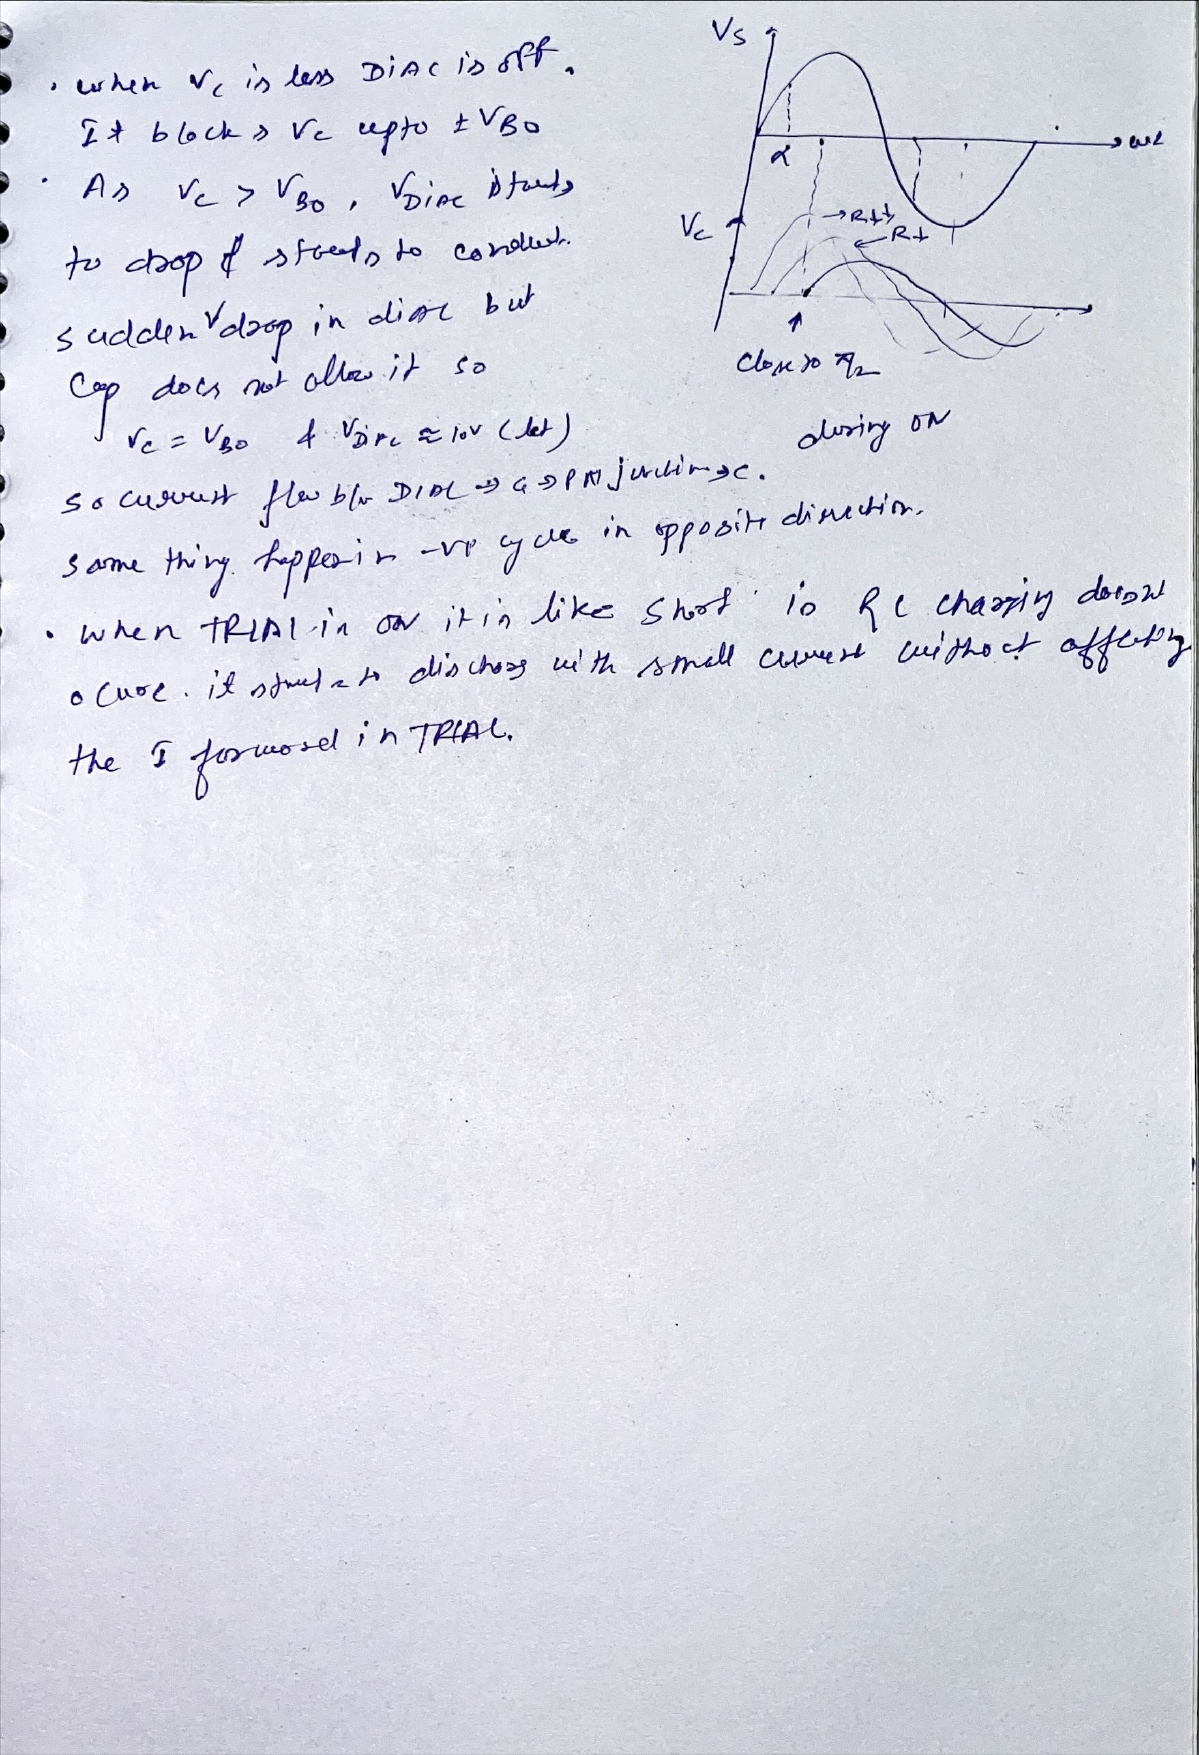 · when Vc is less DIAC is off.
It blocks Vc upto ± VBO
· As Vc > VBO, VDIAC starts
to drop & starts to conduct.
sudden V drop in diac but
Cap does not allow it so
Vc = VBO & VDIAC ≈ 10V (let)
so current flow b/w DIAC → G → PN junction → C. during ON
same thing happen in -ve cycle in opposite direction.
· when TRIAC is on it is like short so RC charging doesnt
occure. it start to discharg with small current without affecting
the I forward in TRIAC.
Vs
α
ωt
Vc
→ R↓↓
← R↓
↑
Close to π/2